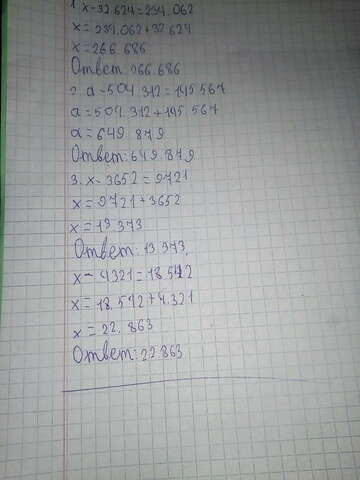 1. x-32 624=234. 062
x=234.062+32 624
x=266 686
Ответ: 266.686
2. a-504 312=145 567
a=504.312+145 567
a=649 879
Ответ: 649.879
3. x-3652=9721
x=9721+3652
x=13 373
Ответ: 13.373.
x-4321=18 542
x=18.542+4.321
x=22. 863
Ответ: 22 863